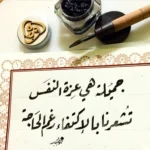 جميلة هي عزة النفس
تشعرنا بالإكتفاء رغم الحاجة